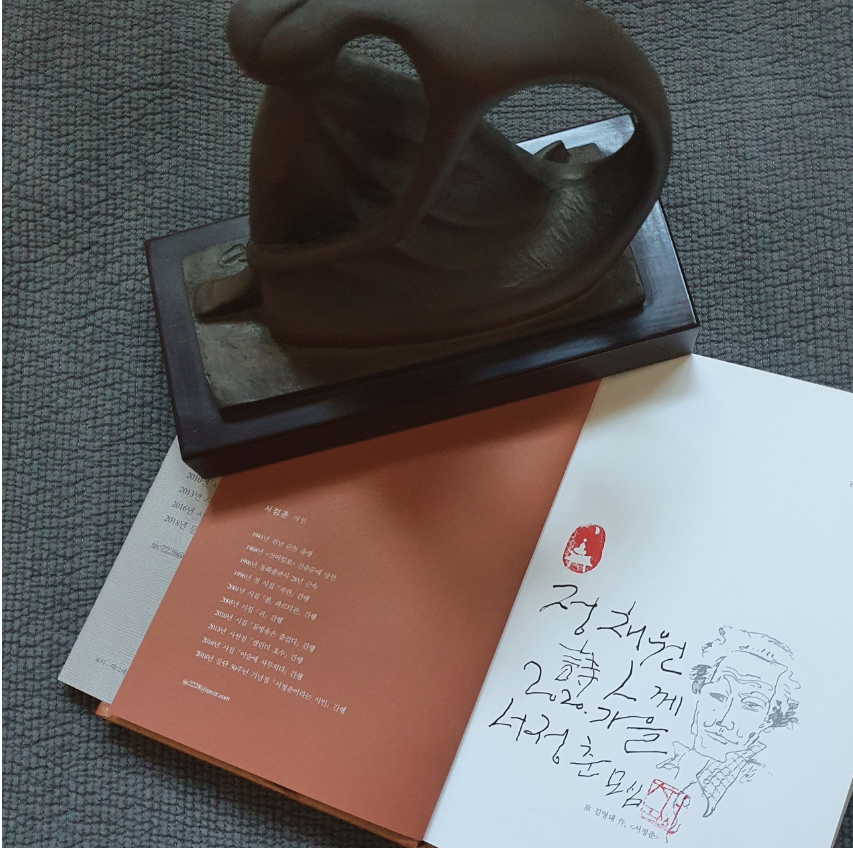 2010년
2013년
2016년
2018년 등
sjc2228@
서정춘 시인
1941년 전남 순천 출생
1968년 <신아일보> 신춘문예 당선
1996년 동화출판사 28년 근속
1996년 첫 시집 『죽편』 간행
2001년 시집 『봄, 파르티잔』 간행
2005년 시집 『귀』 간행
2010년 시집 『물방울은 즐겁다』 간행
2013년 시선집 『캘린더 호수』 간행
2016년 시집 『이슬에 사무치다』 간행
2018년 등단 50주년 기념집 『서정춘이라는 시인』 간행
sjc2228@naver.com
정채원
詩人께
2020. 가을
서정춘 모심
故 김영태 作, <서정춘>